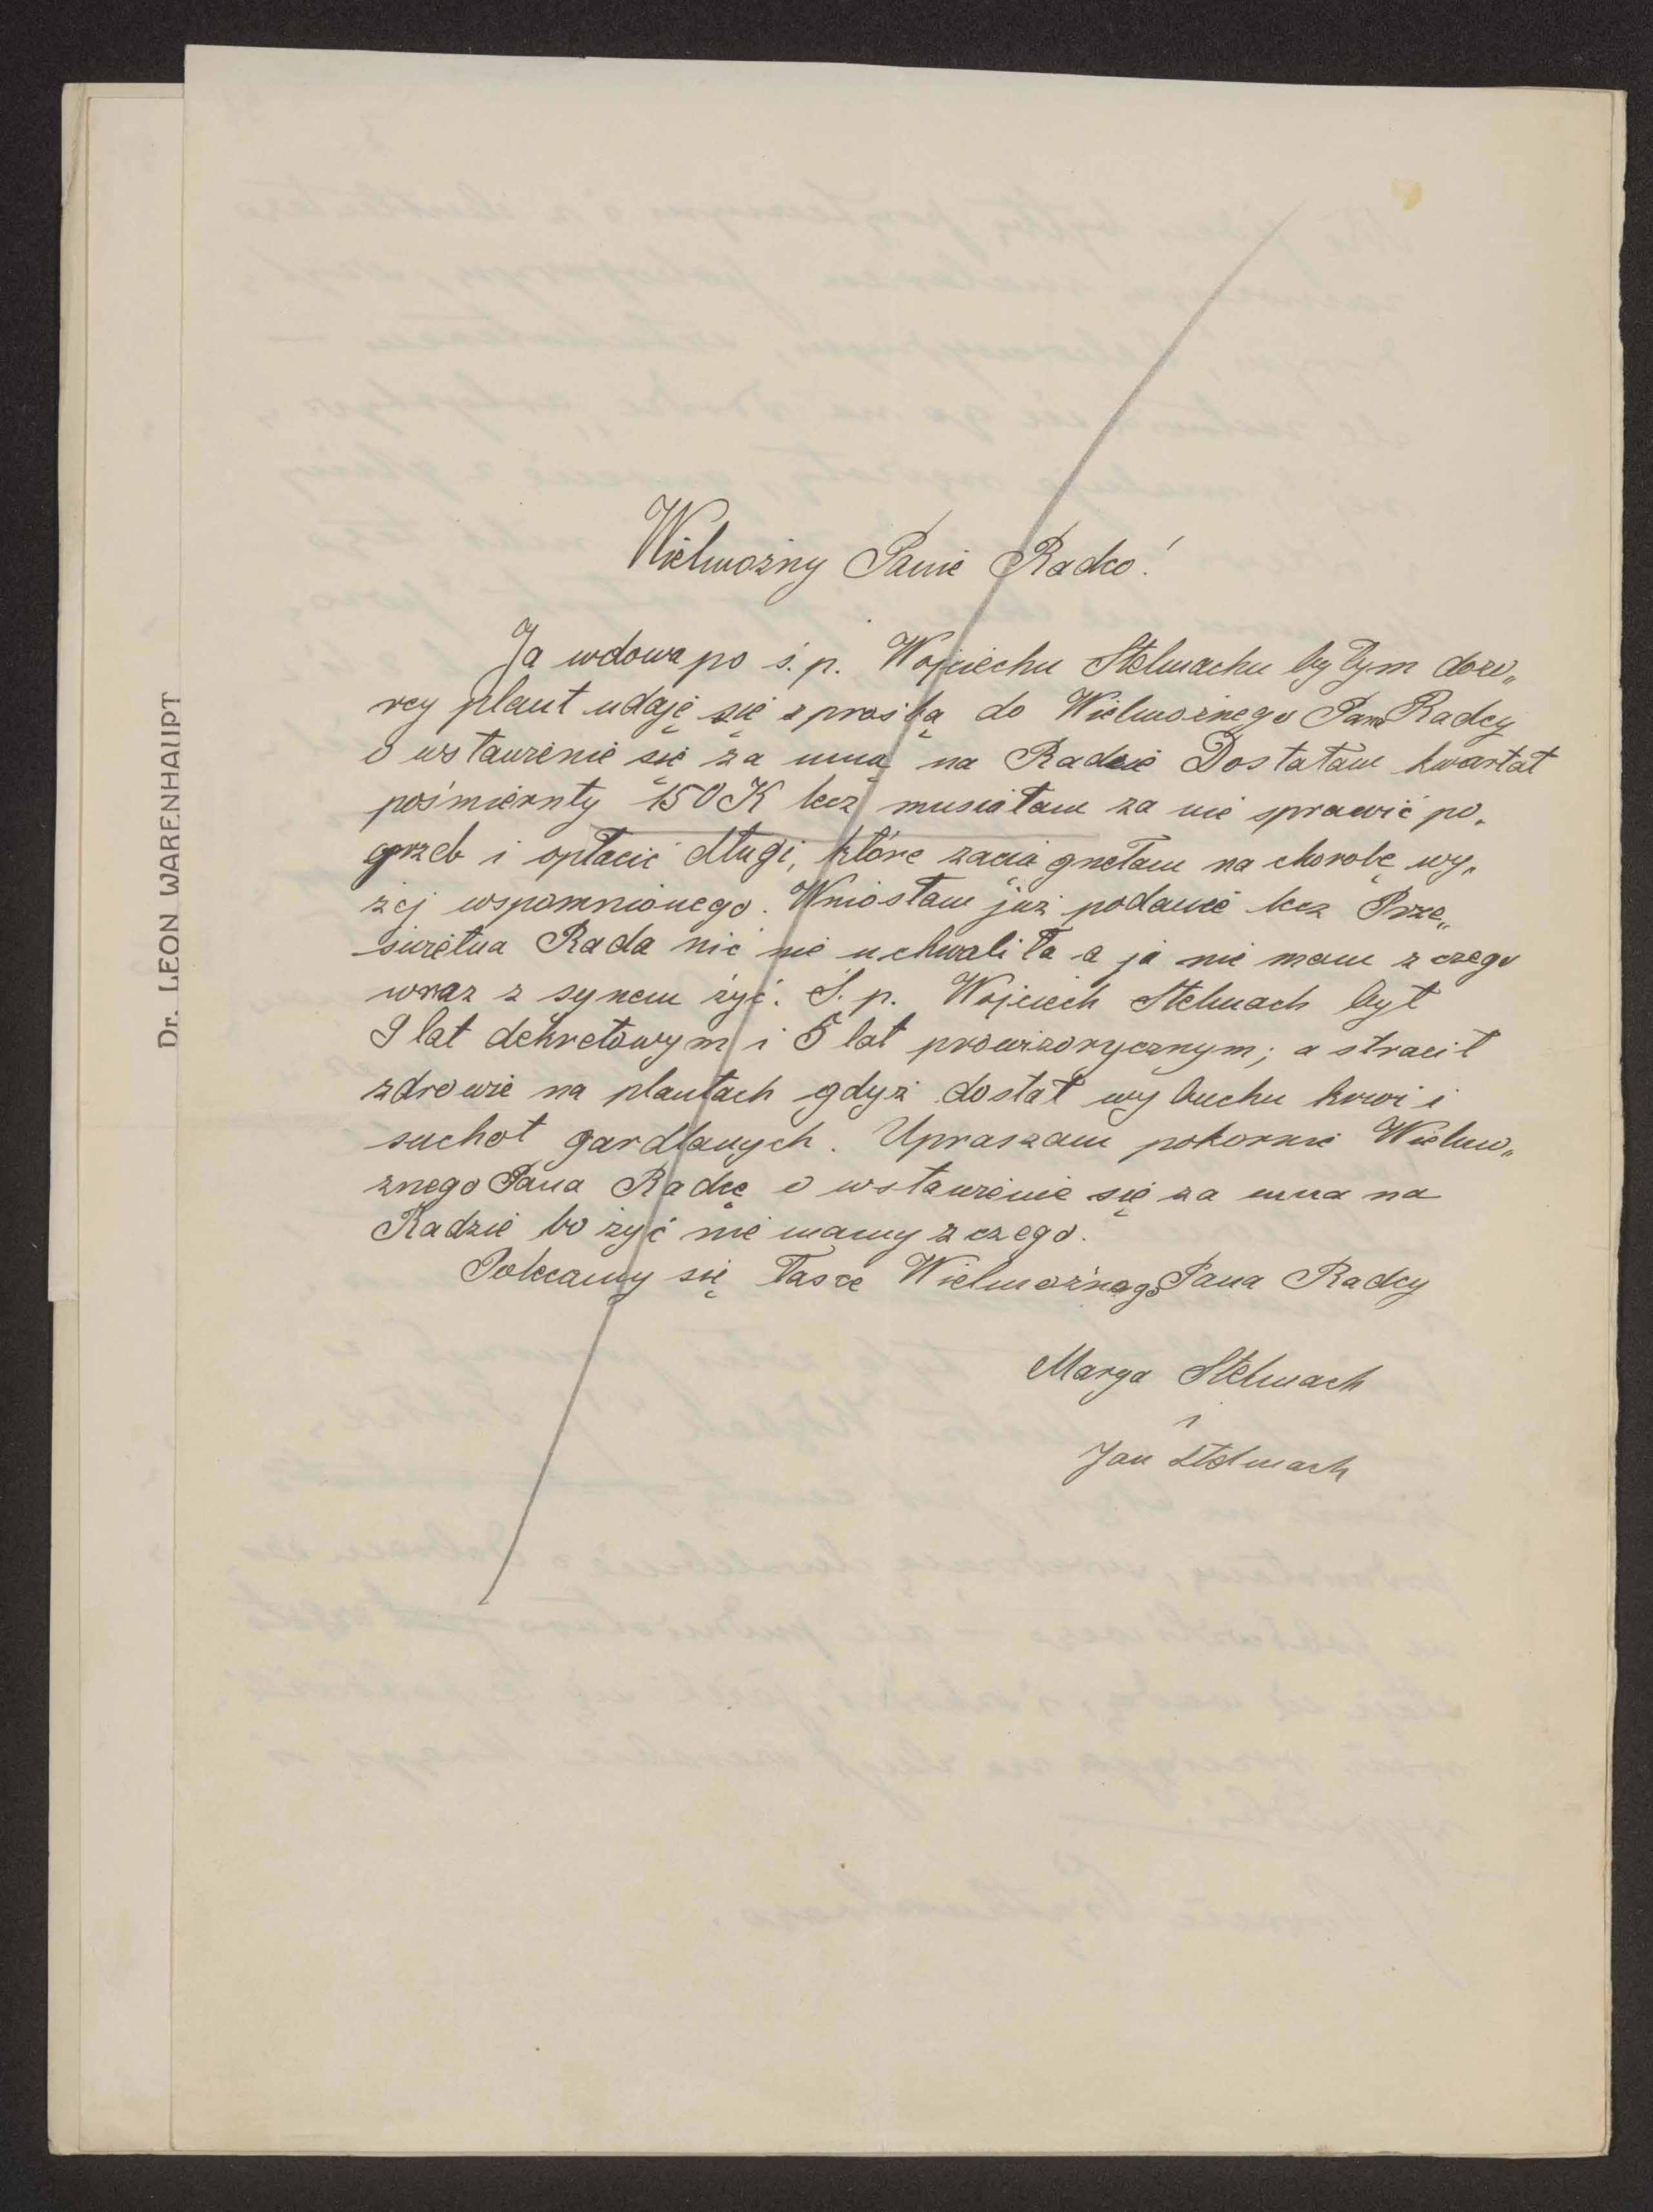 Dr. LEON WARENHAUPT
Wielmożny Panie Radco!
Ja wdowa po ś. p. Wojciechu Stelmachu byłym dozo„
rcy plant udaję się z prośbą do Wielmożnego Pana Radcy
o wstawienie się za mną na Radzie Dostałam kwartał
pośmiertny 150 K lecz musiałam za nie sprawić po„
grzeb i opłacić długi, które zaciągnełam na chorobę wy„
żej wspomnionego. Wniosłam już podanie lecz Prze„
świetna Rada nic nie uchwaliła a ja nie mam z czego
wraz z synem żyć. Ś. p. Wojciech Stelmach był
9 lat dekretowym i 5 lat prowizorycznym; a stracił
zdrowie na plantach gdyż dostał wybuchu krwi i
suchot gardlanych. Upraszam pokornie Wielmo„
żnego Pana Radcę o wstawienie się za mna na
Radzie bo żyć nie mamy z czego.
Polecamy się łasce Wielmożnego Pana Radcy
Marya Stelmach
i
Jan Stelmach